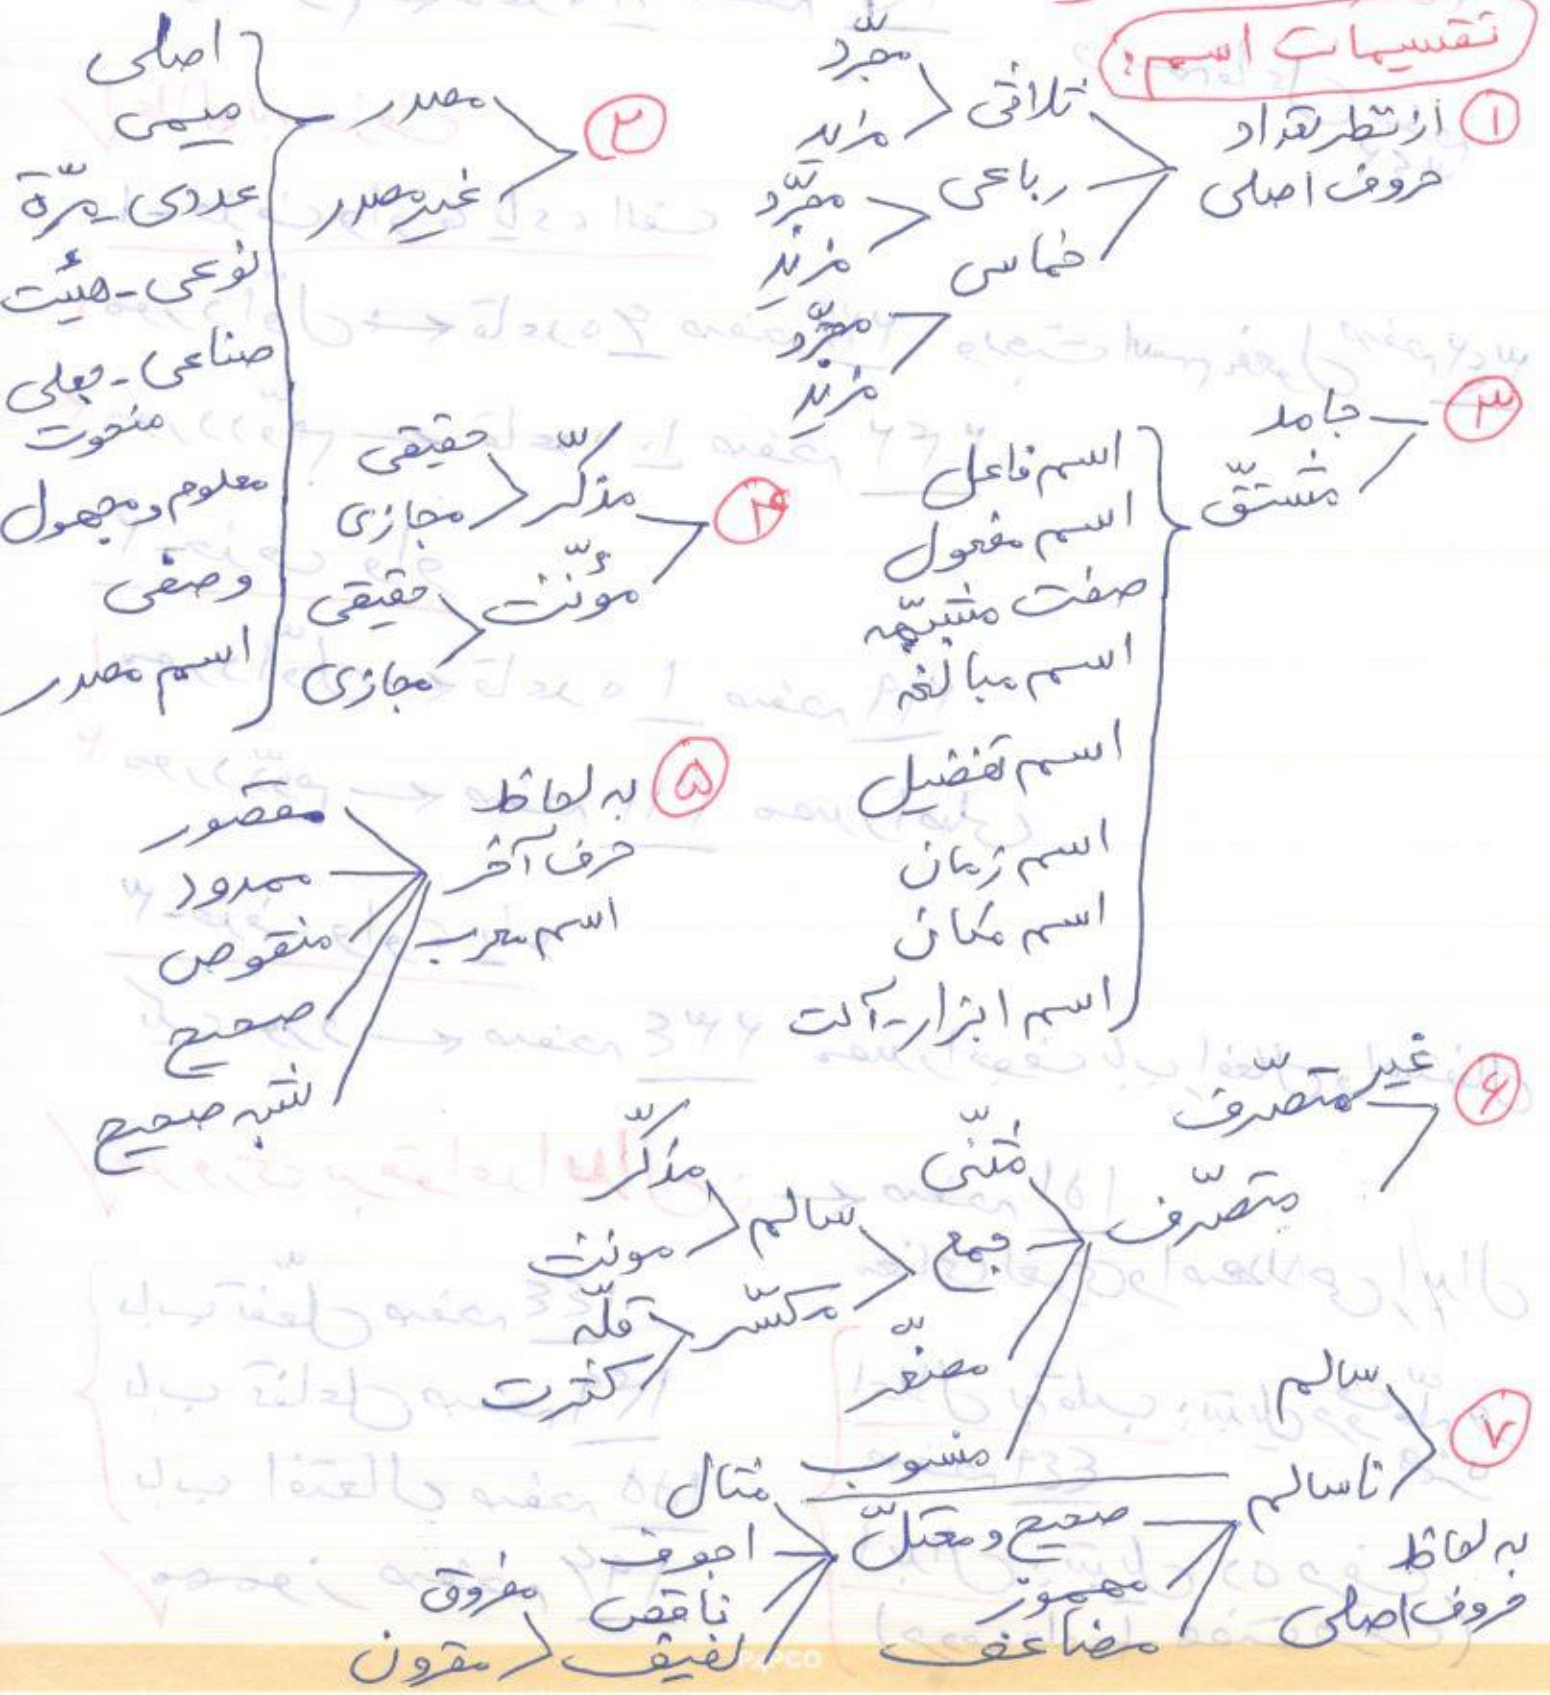 تقسیمات اسم:
۱ از نظر تعداد
حروف اصلی
ثلاثی
مجرّد
مزید
رباعی
مجرّد
مزید
خماسی
مجرّد
مزید
۲
مصدر
غیر مصدر
اصلی
میمی
عددی - مرّة
نوعی - هیئت
صناعی - جعلی
منحوت
معلوم و مجهول
وصفی
اسم مصدر
۳
جامد
مشتقّ
اسم فاعل
اسم مفعول
صفت مشبّهه
اسم مبالغه
اسم تفضیل
اسم زمان
اسم مکان
اسم ابزار - آلت
۴
مذکّر
حقیقی
مجازی
مؤنّث
حقیقی
مجازی
۵ به لحاظ
حرف آخر
اسم معرب
مقصور
ممدود
منقوص
صحیح
شبه صحیح
۶
غیر متصّرف
متصّرف
مثنّی
جمع
سالم
مذکّر
مونث
مکسّر
قلّه
کثرت
مصغّر
منسوب
۷
سالم
ناسالم
به لحاظ
حروف اصلی
صحیح و معتلّ
مهموز
مضاعف
مثال
اجوف
ناقص
لفیف
مفروق
مقرون
PAPCO